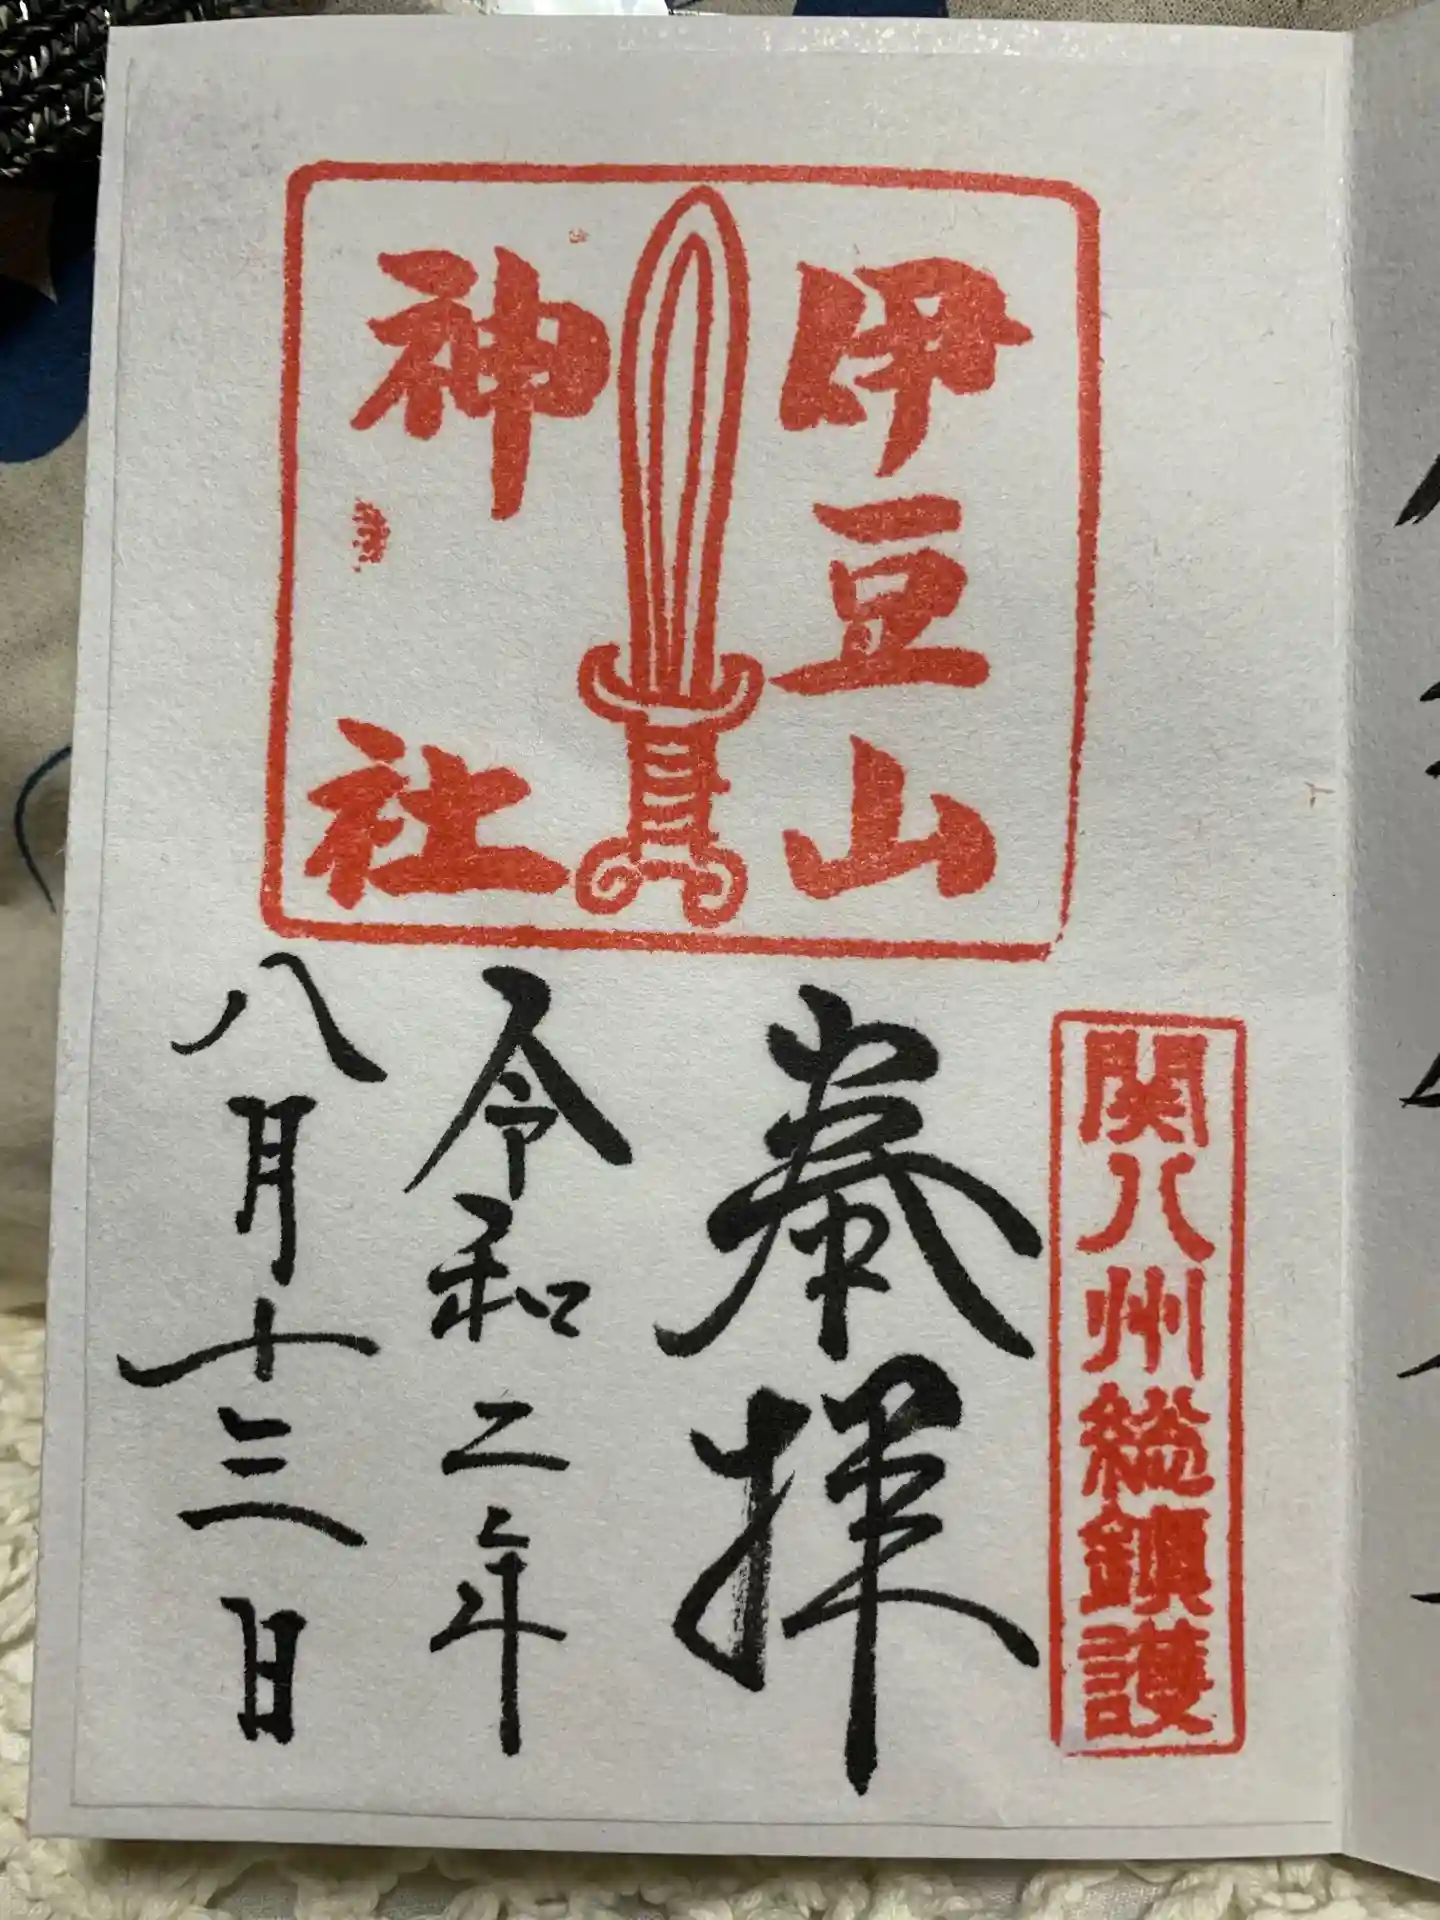 伊豆山
神社
関八州総鎮護
奉拝
令和二年
八月十三日